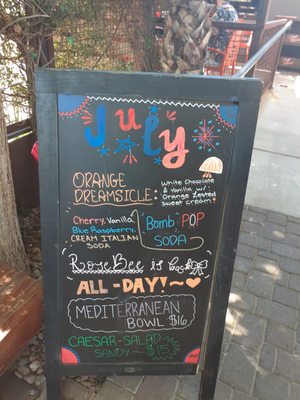 July
ORANGE
DREAMSICLE:
White Chocolate
& Vanilla w/
Orange Zested
Sweet Cream!
Cherry, Vanilla,
Blue Raspberry,
CREAM ITALIAN
SODA
Bomb POP
SODA
RoseBee is
ALL-DAY!~
MEDITERRANEAN
BOWL $16
CAESAR-SALAD
SANDY~ $15